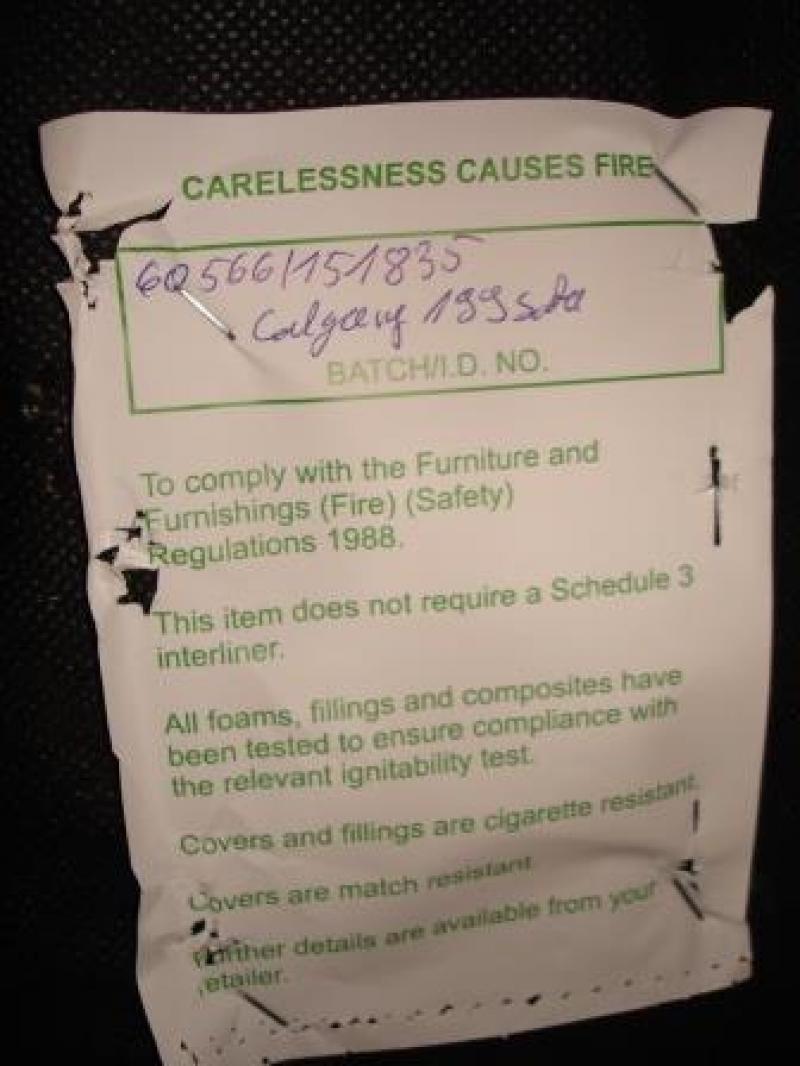 CARELESSNESS CAUSES FIRE
60566/151835
Calgary 199
BATCH/I.D. NO.
To comply with the Furniture and
Furnishings (Fire) (Safety)
Regulations 1988.
This item does not require a Schedule 3
interliner.
All foams, fillings and composites have
been tested to ensure compliance with
the relevant ignitability test.
Covers and fillings are cigarette resistant.
Covers are match resistant
Further details are available from your
retailer.